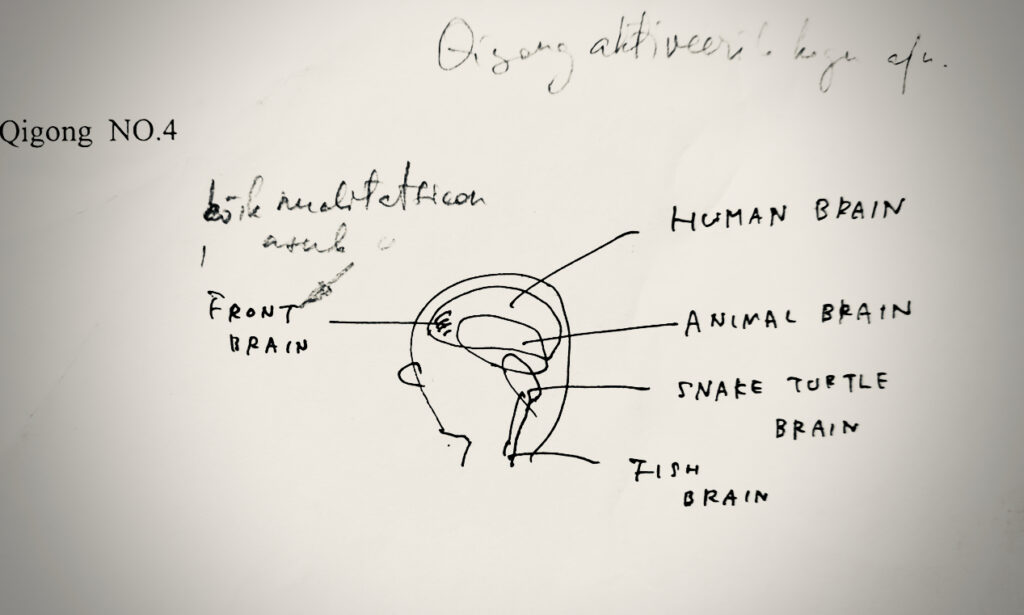 Qigong aktiveerib kogu aju.
Qigong NO.4
kõik meditatsioon
asub
HUMAN BRAIN
FRONT
BRAIN
ANIMAL BRAIN
SNAKE TURTLE
BRAIN
FISH
BRAIN